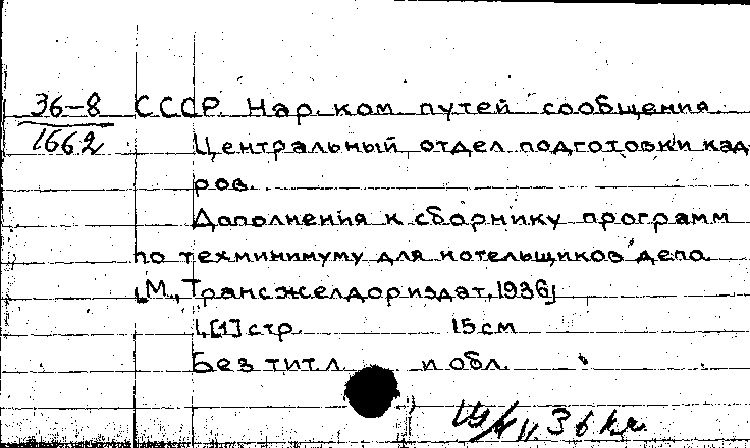 36-8 СССР. Нар. ком. путей сообщения.
1662 Центральный отдел подготовки кад
ров.
Дополнения к сборнику программ
по техминимуму для котельщиков депо.
[М., Трансжелдориздат, 1936]
1, [1] стр. 15 см
Без тит. л. и обл.
36